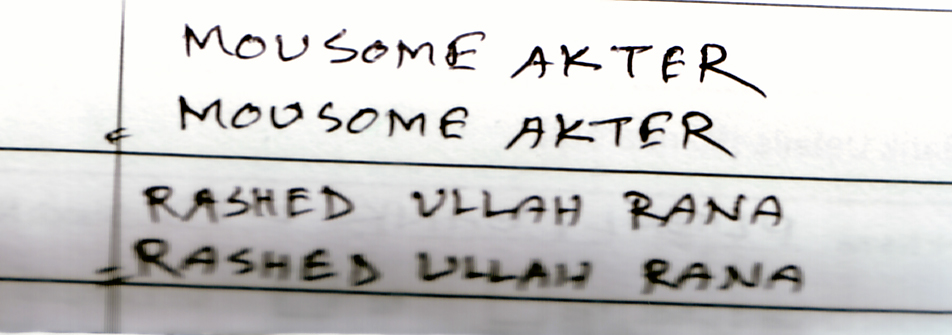 MOUSOME AKTER
MOUSOME AKTER
RASHED ULLAH RANA
RASHED ULLAH RANA